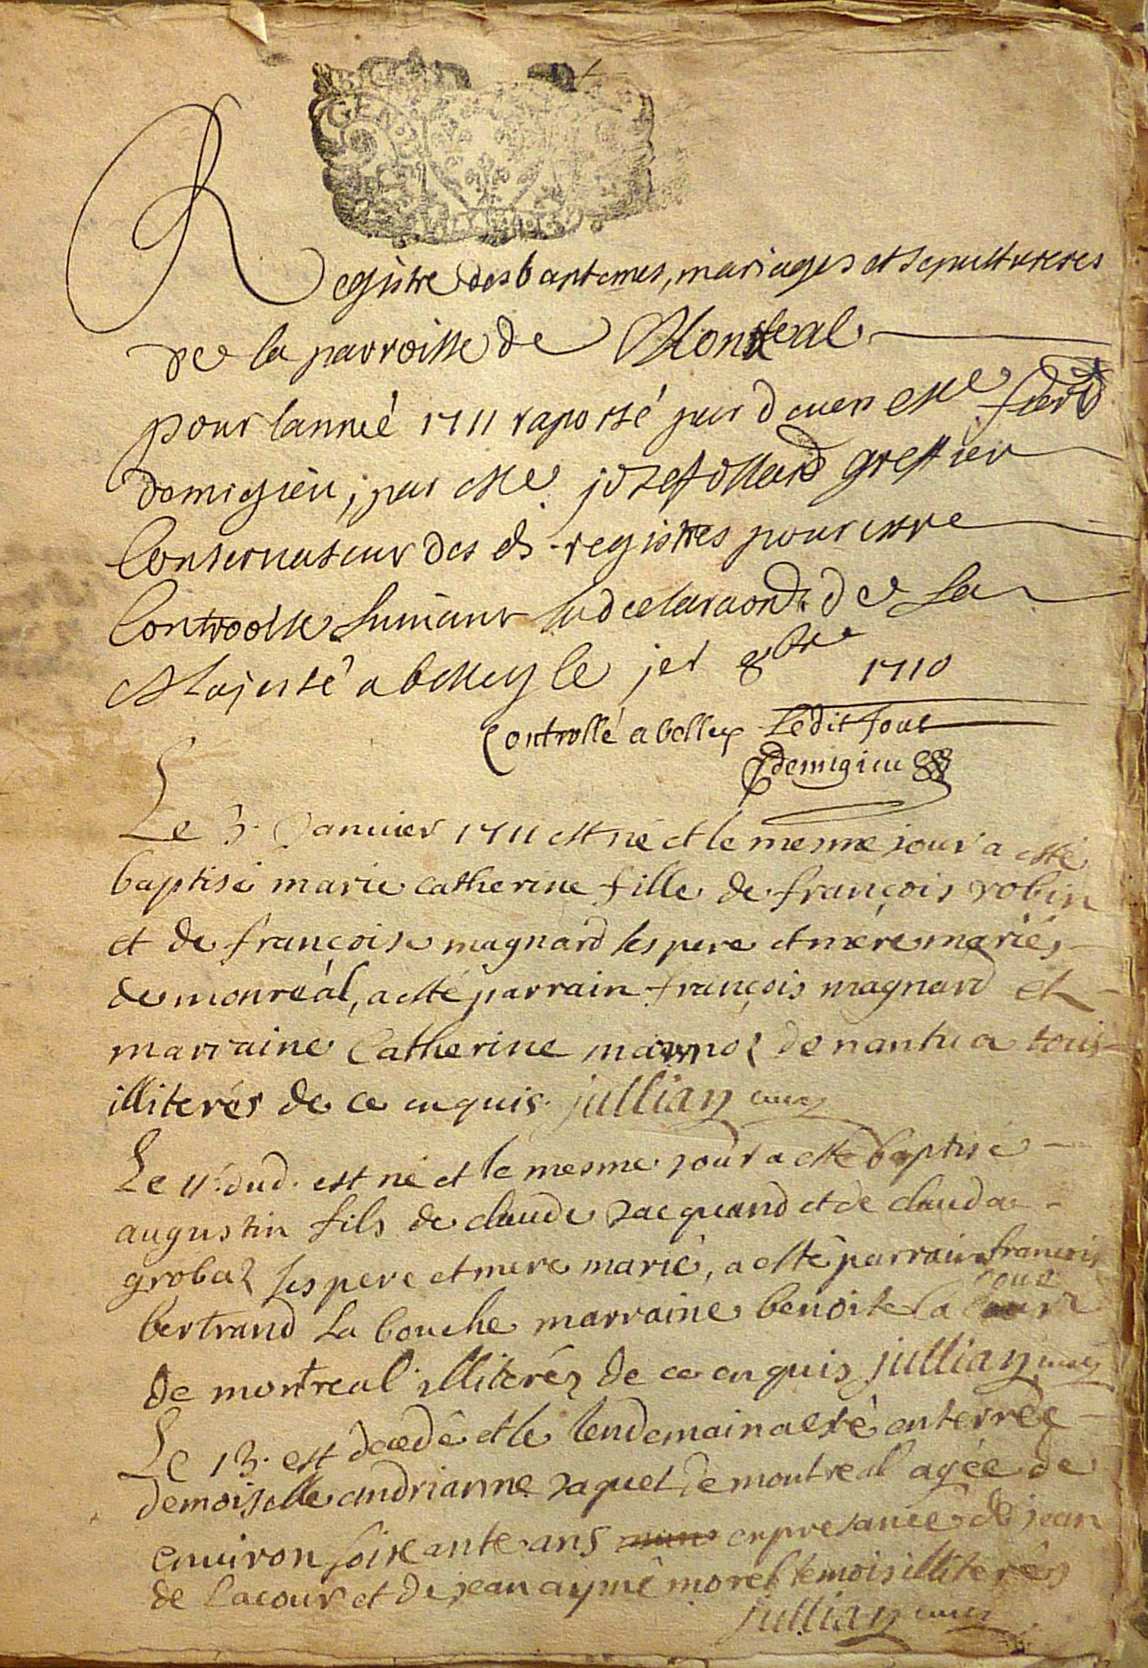 Registre des baptemes, mariages et sepultureres
de la parroisse de Montreal
pour lanneé 1711 raporté par deuen Me
demigieu, par Me josef greffier
Conservateur des ds. registres pour estre
Controolle suivant la declaraon de Sa
Majesté a belley le jer 8bre 1710
Controllé a belley Ledit Jour
demigieu
Le 3. Januier 1711 est né et le mesme jour a esté
baptisé marie catherine fille de françois robin
et de françoise magnard ses pere et mere mariés
de monreal, a esté parrain françois magnard et
marraine Catherine de nantua tous
illiterés de ce enquis. jullian curé
Le 11. dud. est né et le mesme jour a esté baptisé
augustin fils de claude Jacquand et de clauda
grobaz ses pere et mere marié, a esté parrain francois
bertrand la bouche marraine benoite la cour
de montreal illiterés de ce enquis jullian curé
Le 13. est decedé et le lendemain a esté enterrée
demoiselle andrianne Jaquet de montreal agée de
environ soixante ans en presance de jean
de Lacour et de jean aymé morel temois illiterés
jullian curé